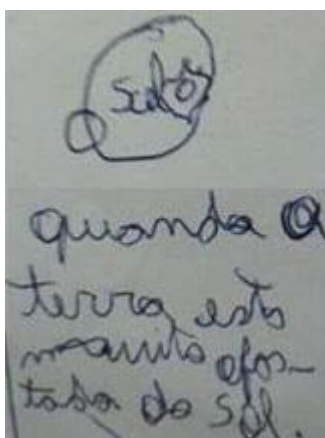 Sol
quando a
terra esta
muito afas-
tada do sol.